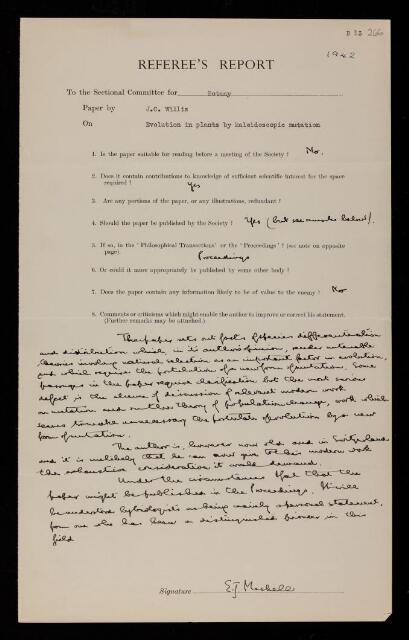 D 33 266
1942
REFEREE'S REPORT
To the Sectional Committee for Botany
Paper by J.C. Willis
On Evolution in plants by kaleidoscopic mutation
1. Is the paper suitable for reading before a meeting of the Society ? No.
2. Does it contain contributions to knowledge of sufficient scientific interest for the space
required ? Yes
3. Are any portions of the paper, or any illustrations, redundant ?
4. Should the paper be published by the Society ? Yes (but see remarks below).
5. If so, in the 'Philosophical Transactions' or the 'Proceedings' ? (see note on opposite
page). Proceedings
6. Or could it more appropriately be published by some other body ?
7. Does the paper contain any information likely to be of value to the enemy ? No
8. Comments or criticisms which might enable the author to improve or correct his statement.
(Further remarks may be attached.)
The paper sets out facts of species differentiation
and distribution which, in its author's opinion, render untenable
theories involving natural selection as an important factor in evolution,
and which require the postulation of a new form of mutation. Some
passages in the paper require clarification but the most serious
defect is the absence of discussion of relevant modern work
on mutation and on the theory of population change, work which
seems to make unnecessary the postulate of evolution by a new
form of mutation.
The author is, however now old and in Switzerland
and it is unlikely that he can ever give to this modern work
the exhaustive consideration it would demand.
Under the circumstances I feel that the
paper might be published in the Proceedings. It will
be understood by biologists as being mainly a personal statement,
from one who has been a distinguished pioneer in this
field
Signature